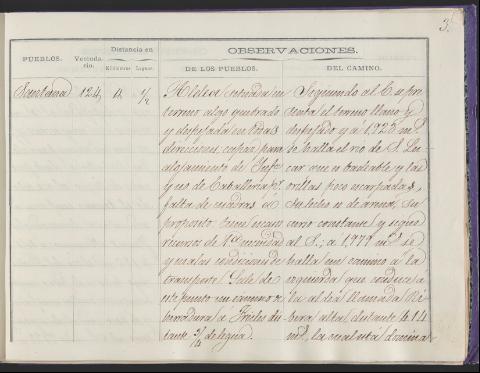 3.
PUEBLOS.
Vecinda-
rio.
Distancia en
Kilómetros
Leguas.
OBSERVACIONES.
DE LOS PUEBLOS.
DEL CAMINO.
Santana 124 ½
Aldea situada en
terreno algo quebrado
y despejado en todas
direcciones, capaz para
alojamiento de Infª
y no de Caballeria pr.
falta de cuadras á
proposito, tiene
de 1ª necesidad
y malas condiciones de
transporte. Sale de
este punto un camino de
herradura á distante
¾ de legua.
Siguiendo al E. se pre-
senta el terreno llano y
despejado y á 1926 ms.
se halla el rio de S. Lu-
car que es badeable y las
orillas poco escarpadas,
su lecho es de arena, su
curso constante y sigue
al S.; á 1,979 ms. se
halla un camino á la
izquierda que conduce á
la aldea llamada Ri-
bera alta, distante 614
ms, la cual está domina-